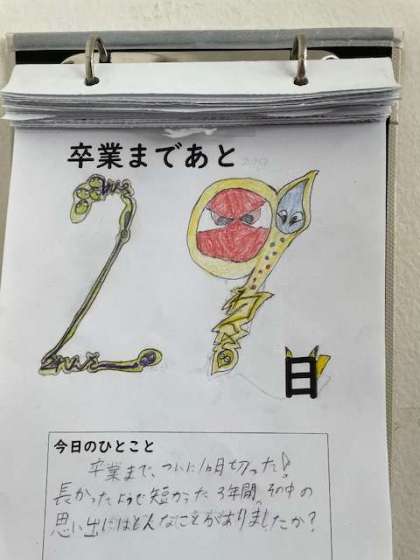 卒業まであと
29
日
今日のひとこと
卒業まで、ついに1ヶ月切った!
長かったようで短かった3年間。その中の
思い出にはどんなことがありましたか?